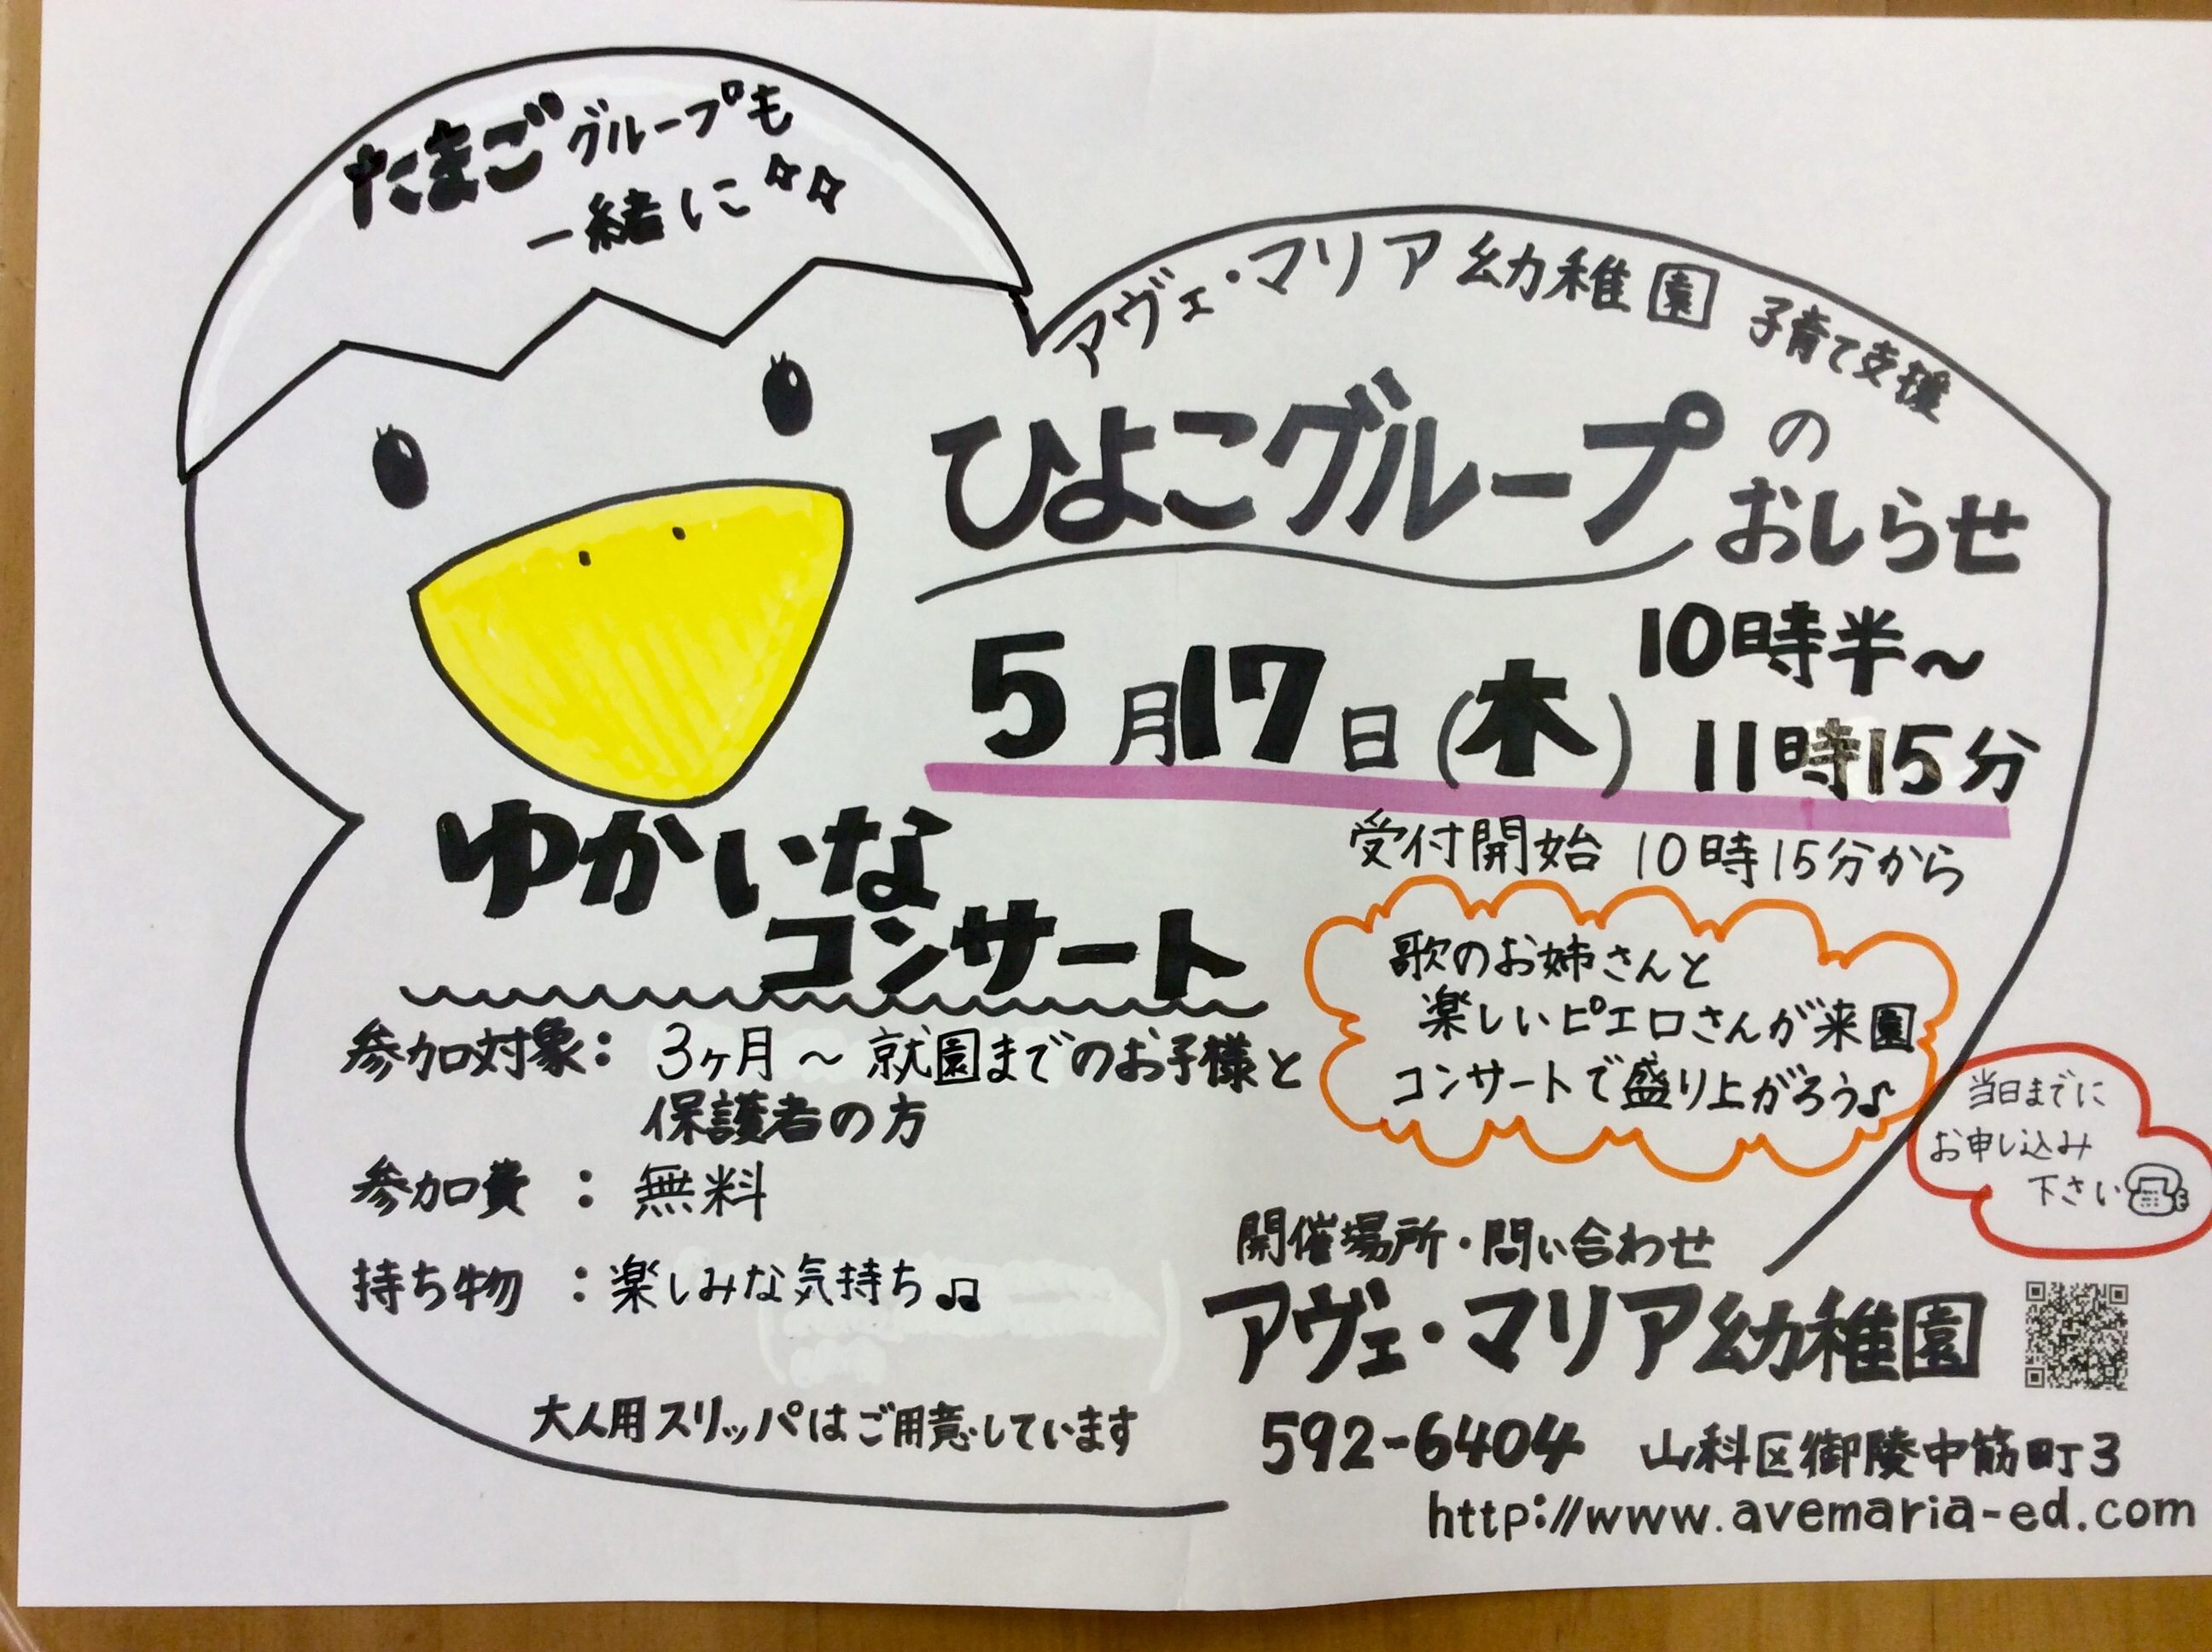 たまごグループも
一緒に☆☆
アヴェ・マリア幼稚園 子育て支援
ひよこグループの
おしらせ
5月17日(木) 10時半～
11時15分
受付開始 10時15分から
ゆかいな
コンサート
歌のお姉さんと
楽しいピエロさんが来園
コンサートで盛り上がろう♪
参加対象: 3ヶ月～就園までのお子様と
保護者の方
参加費 : 無料
持ち物 : 楽しみな気持ち♫
大人用スリッパはご用意しています
当日までに
お申し込み
下さい
開催場所・問い合わせ
アヴェ・マリア幼稚園
592-6404 山科区御陵中筋町3
http://www.avemaria-ed.com